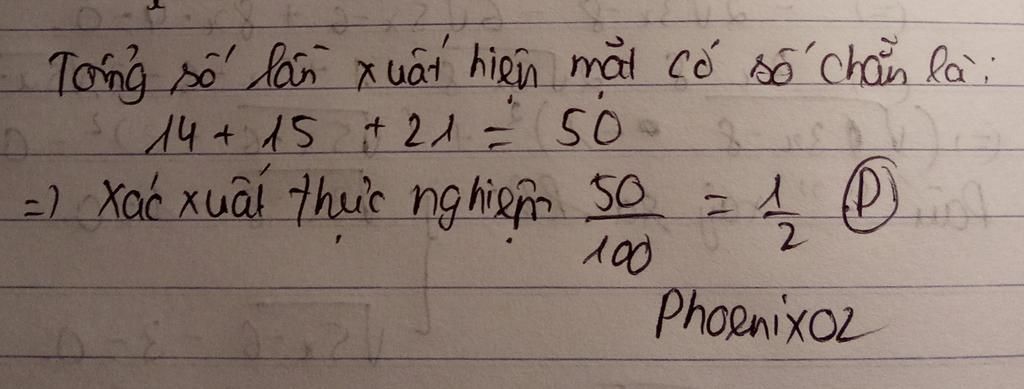 Tổng số lần xuất hiện mặt có số chẵn là:
14 + 15 + 21 = 50
=) Xác xuất thực nghiệm 50/100 = 1/2 (D)
Phoenix02